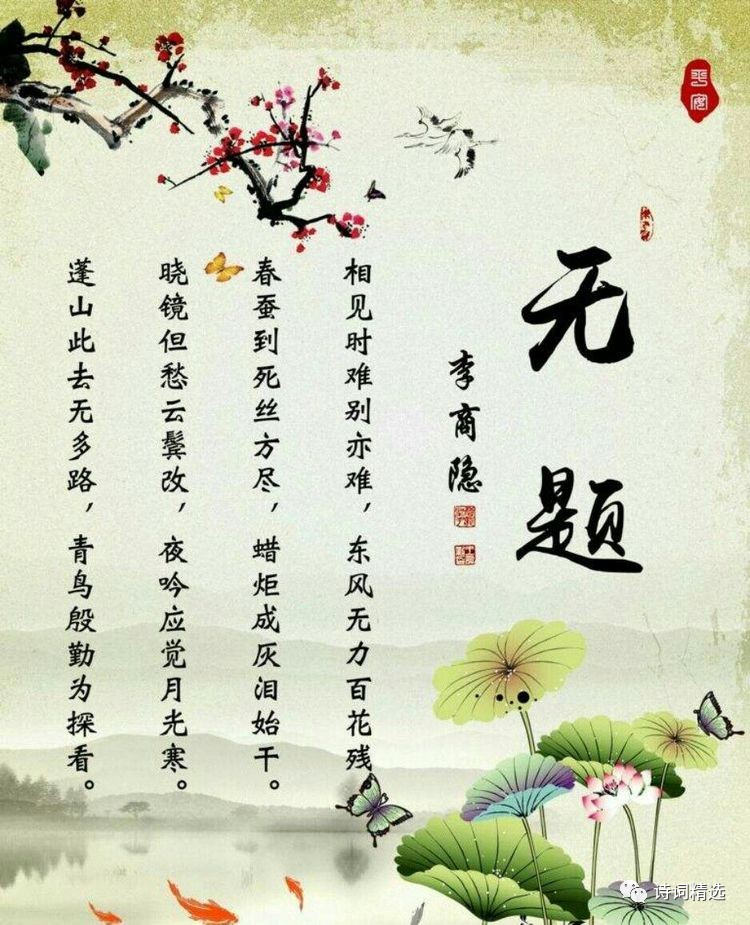 无题
李商隐
相见时难别亦难，东风无力百花残。
春蚕到死丝方尽，蜡炬成灰泪始干。
晓镜但愁云鬓改，夜吟应觉月光寒。
蓬山此去无多路，青鸟殷勤为探看。
诗词精选